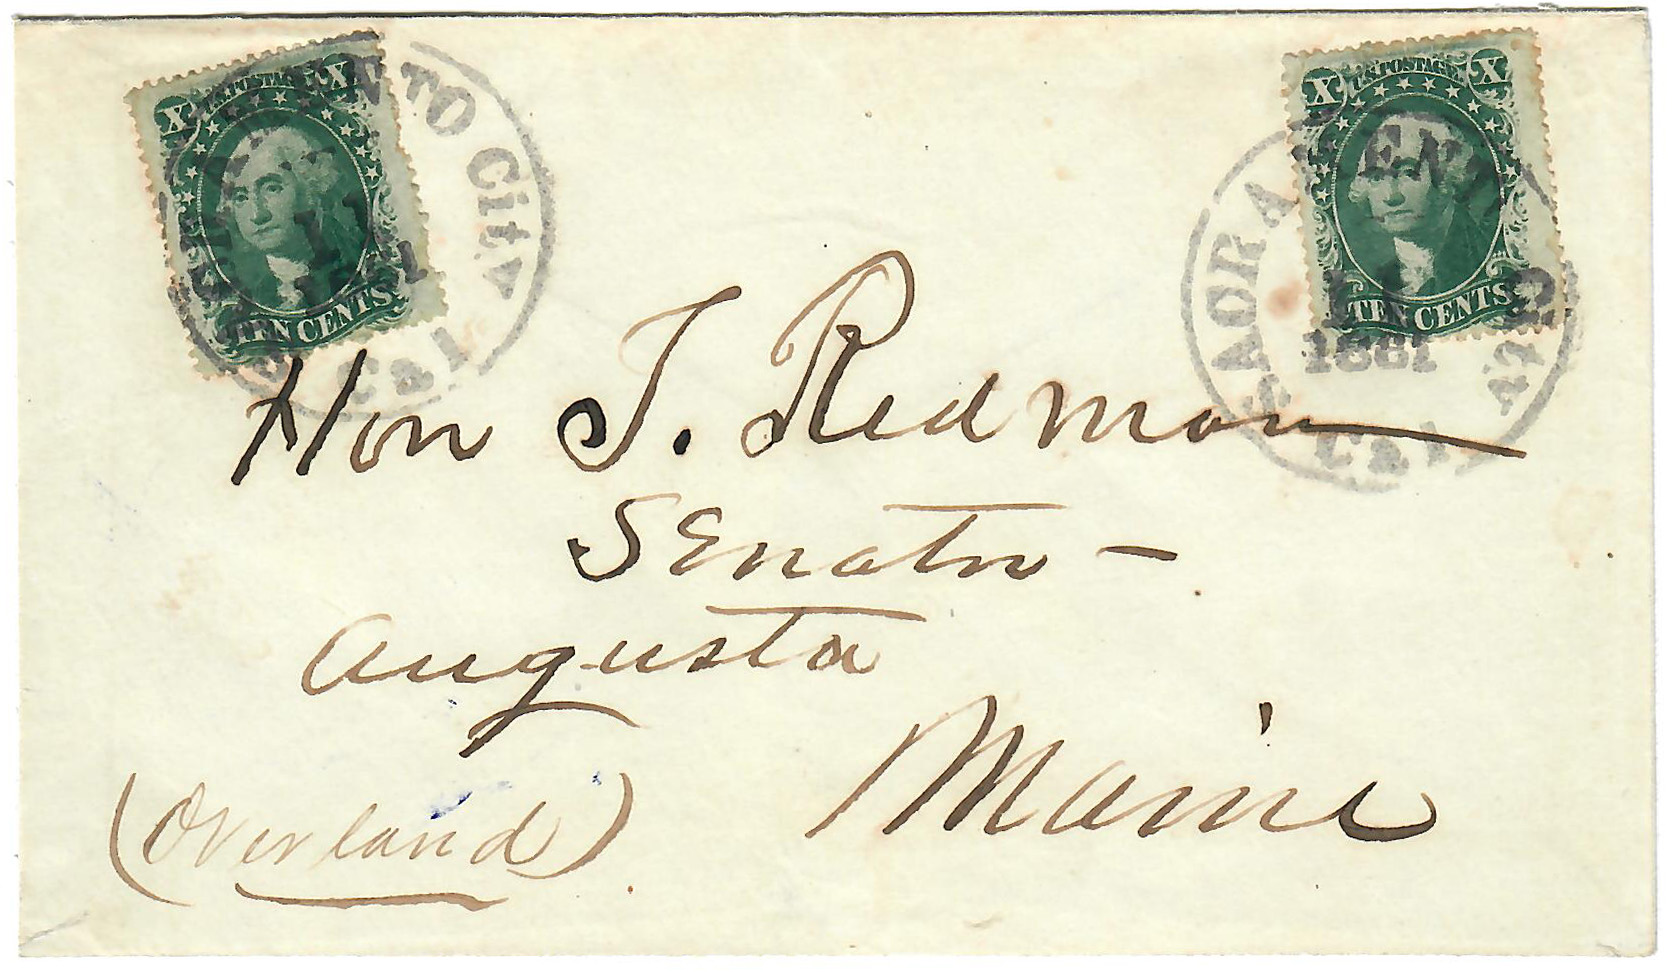 X U.S. POSTAGE X
TEN CENTS
SACRAMENTO City
11
1861
Cal
X U.S. POSTAGE X
TEN CENTS
SACRAMENTO City
1861
Cal
Hon J. Redman
Senator -
Augusta
Maine
(Overland)